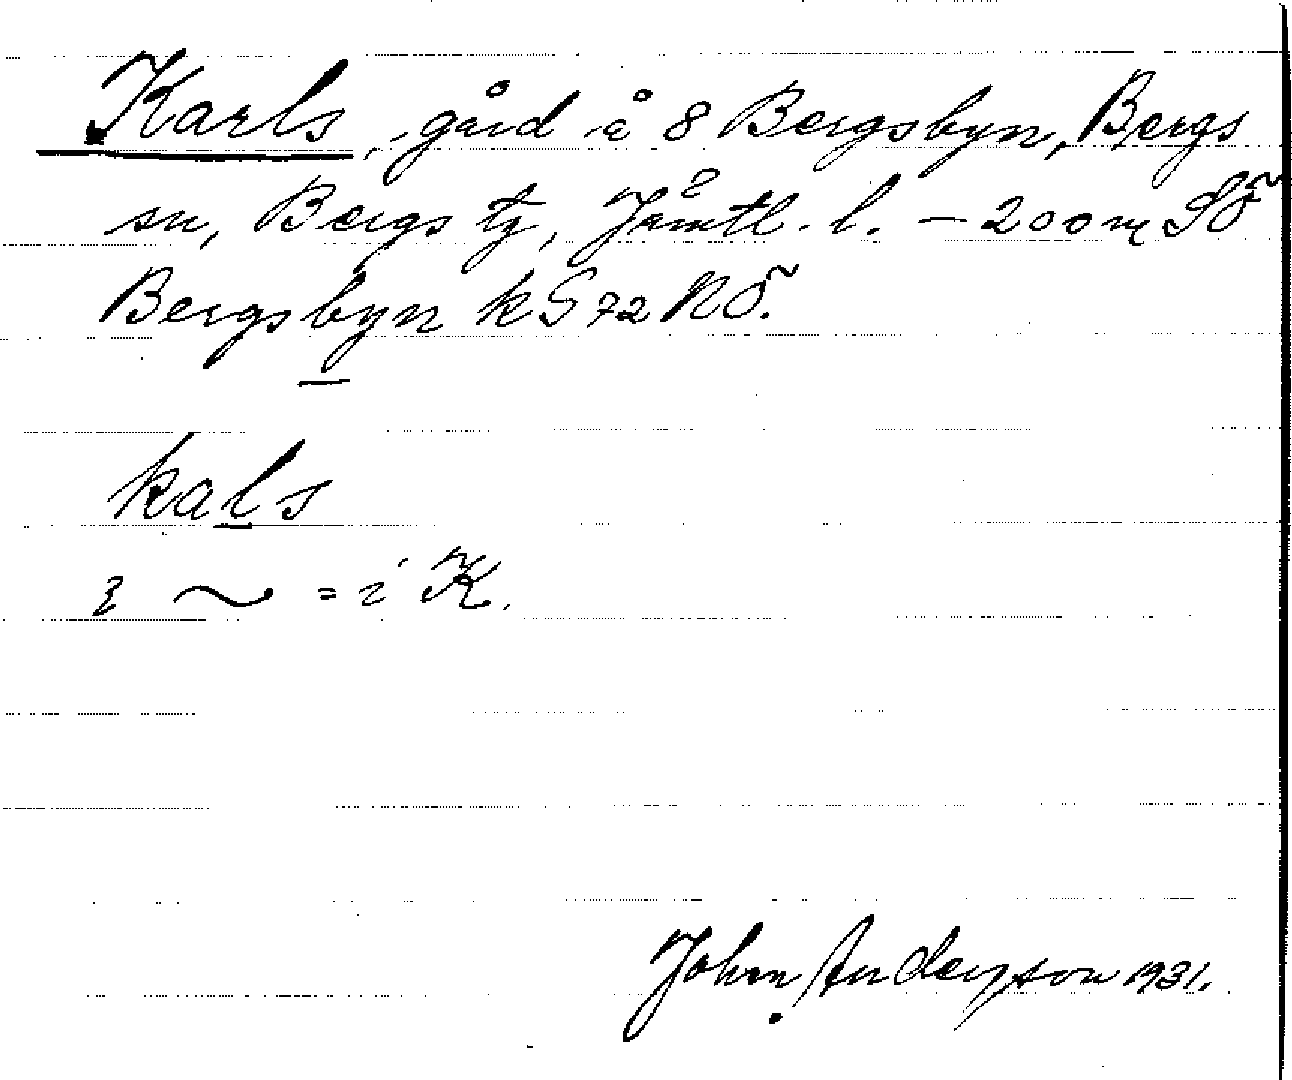 Karls, gård å 8 Bergsbyn, Bergs
sn, Bergs tg, Jämtl. l. — 200 m SÖ
Bergsbyn k S 72 NÖ.
kals
~ = i K.
John Anderson 1931.